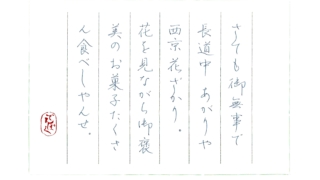 さても御無事で
長道中 あがりや
西京 花ざかり。
花を見ながら御褒
美のお菓子たくさ
ん食べしやんせ。